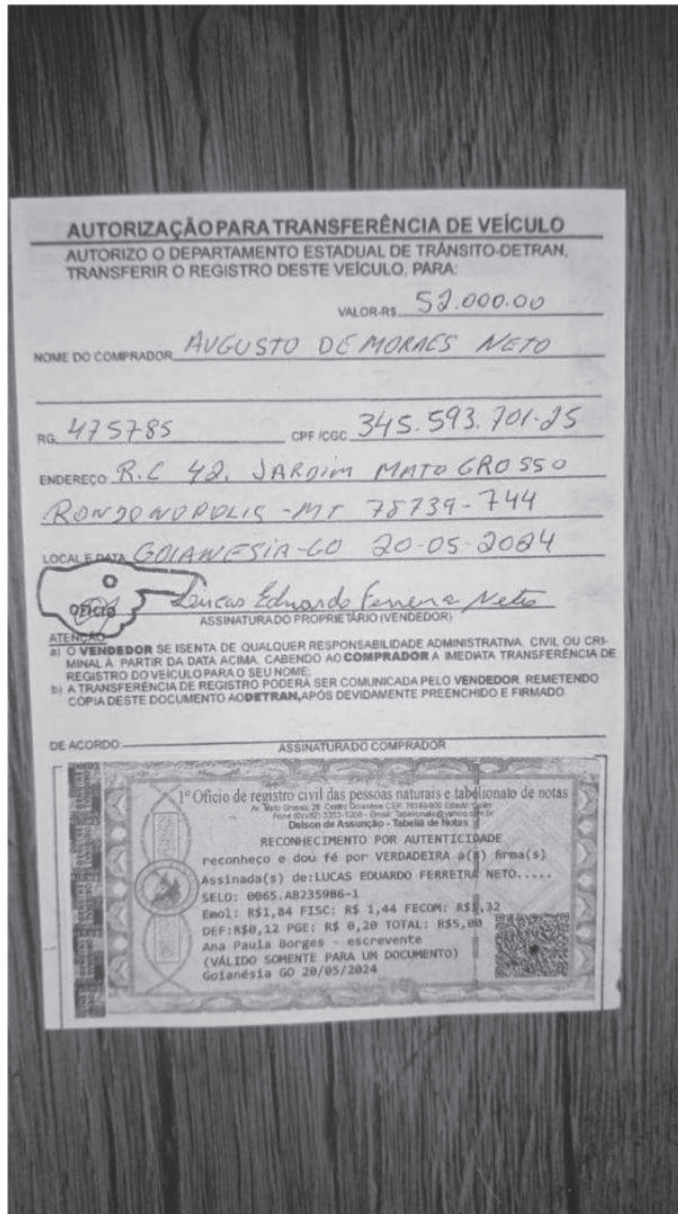 AUTORIZAÇÃO PARA TRANSFERÊNCIA DE VEÍCULO
AUTORIZO O DEPARTAMENTO ESTADUAL DE TRÂNSITO-DETRAN,
TRANSFERIR O REGISTRO DESTE VEÍCULO, PARA:
VALOR-R$ 52.000.00
NOME DO COMPRADOR AUGUSTO DE MORAES NETO
RG. 475785 CPF/CGC 345.593.701-25
ENDEREÇO R.C 42, JARDIM MATO GROSSO
RONDONOPOLIS-MT 78739-744
LOCAL E DATA GOIANESIA-GO 20-05-2024
OFICIO Lucas Eduardo Ferreira Neto
ASSINATURA DO PROPRIETÁRIO (VENDEDOR)
ATENÇÃO
a) O VENDEDOR SE ISENTA DE QUALQUER RESPONSABILIDADE ADMINISTRATIVA, CIVIL OU CRI-
MINAL À PARTIR DA DATA ACIMA, CABENDO AO COMPRADOR A IMEDIATA TRANSFERÊNCIA DE
REGISTRO DO VEÍCULO PARA O SEU NOME;
b) A TRANSFERÊNCIA DE REGISTRO PODERÁ SER COMUNICADA PELO VENDEDOR. REMETENDO
COPIA DESTE DOCUMENTO AO DETRAN, APÓS DEVIDAMENTE PREENCHIDO E FIRMADO.
DE ACORDO
ASSINATURA DO COMPRADOR
1º Oficio de registro civil das pessoas naturais e tabelionato de notas
Delson de Assunção - Tabeliã de Notas
RECONHECIMENTO POR AUTENTICIDADE
reconheço e dou fé por VERDADEIRA a(s) firma(s)
Assinada(s) de:LUCAS EDUARDO FERREIRA NETO.....
SELO: 0065.AB235986-1
Emol: R$1,84 FISC: R$ 1,44 FECOM: R$1,32
DEF:R$0,12 PGE: R$ 0,20 TOTAL: R$5,00
Ana Paula Borges - escrevente
(VÁLIDO SOMENTE PARA UM DOCUMENTO)
Goianésia GO 20/05/2024